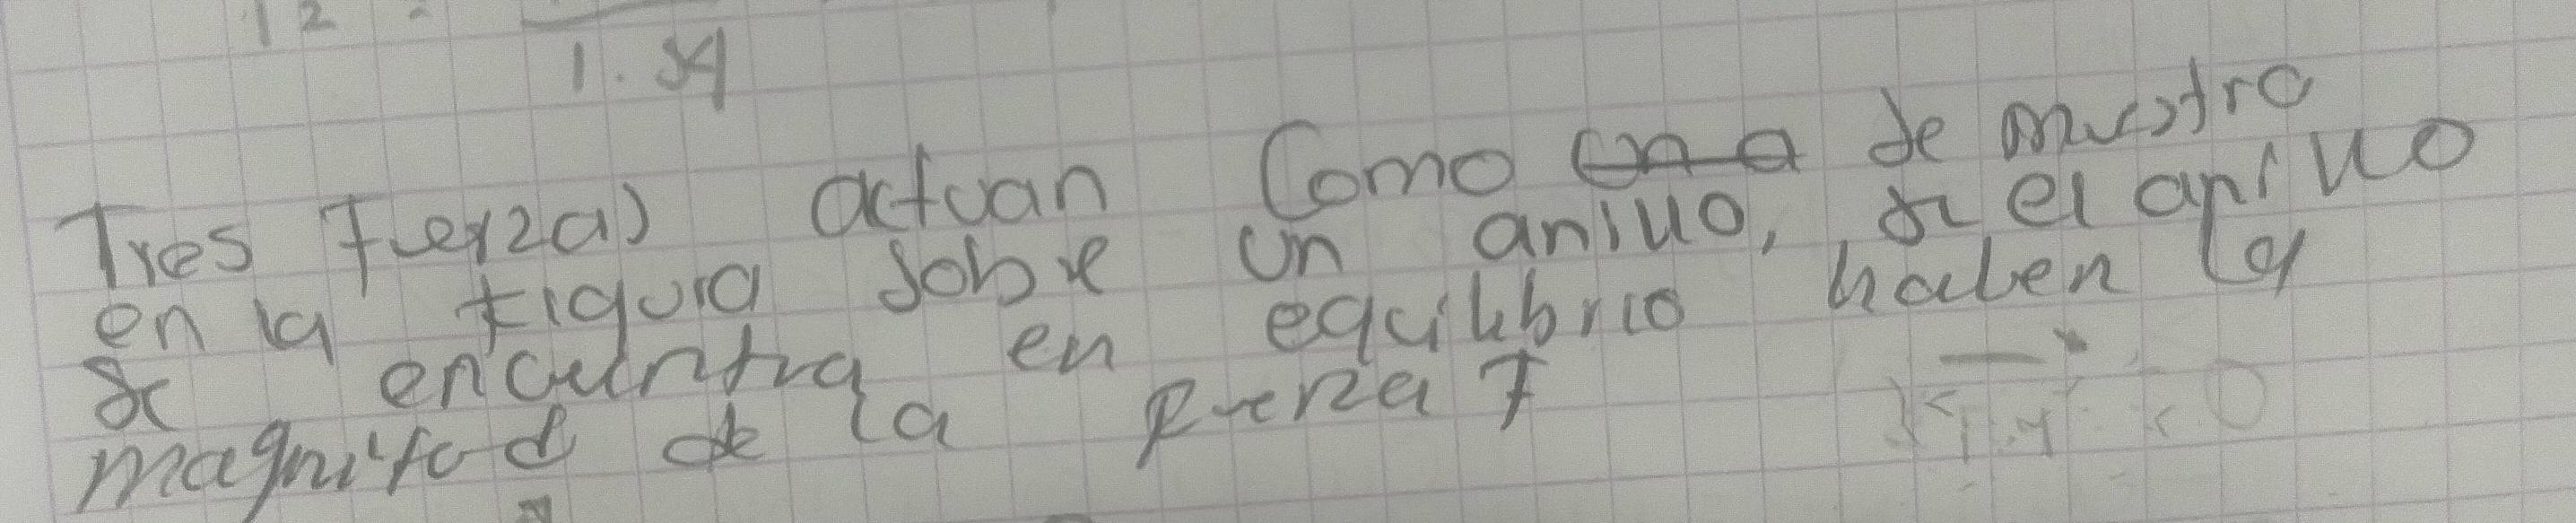 12 =
1.54
Tres Fuerzas actuan Como de muestra
en la figura sobre un anillo, si el anillo
se encuentra en equilibrio hallen la
magnitud de la fuerza F